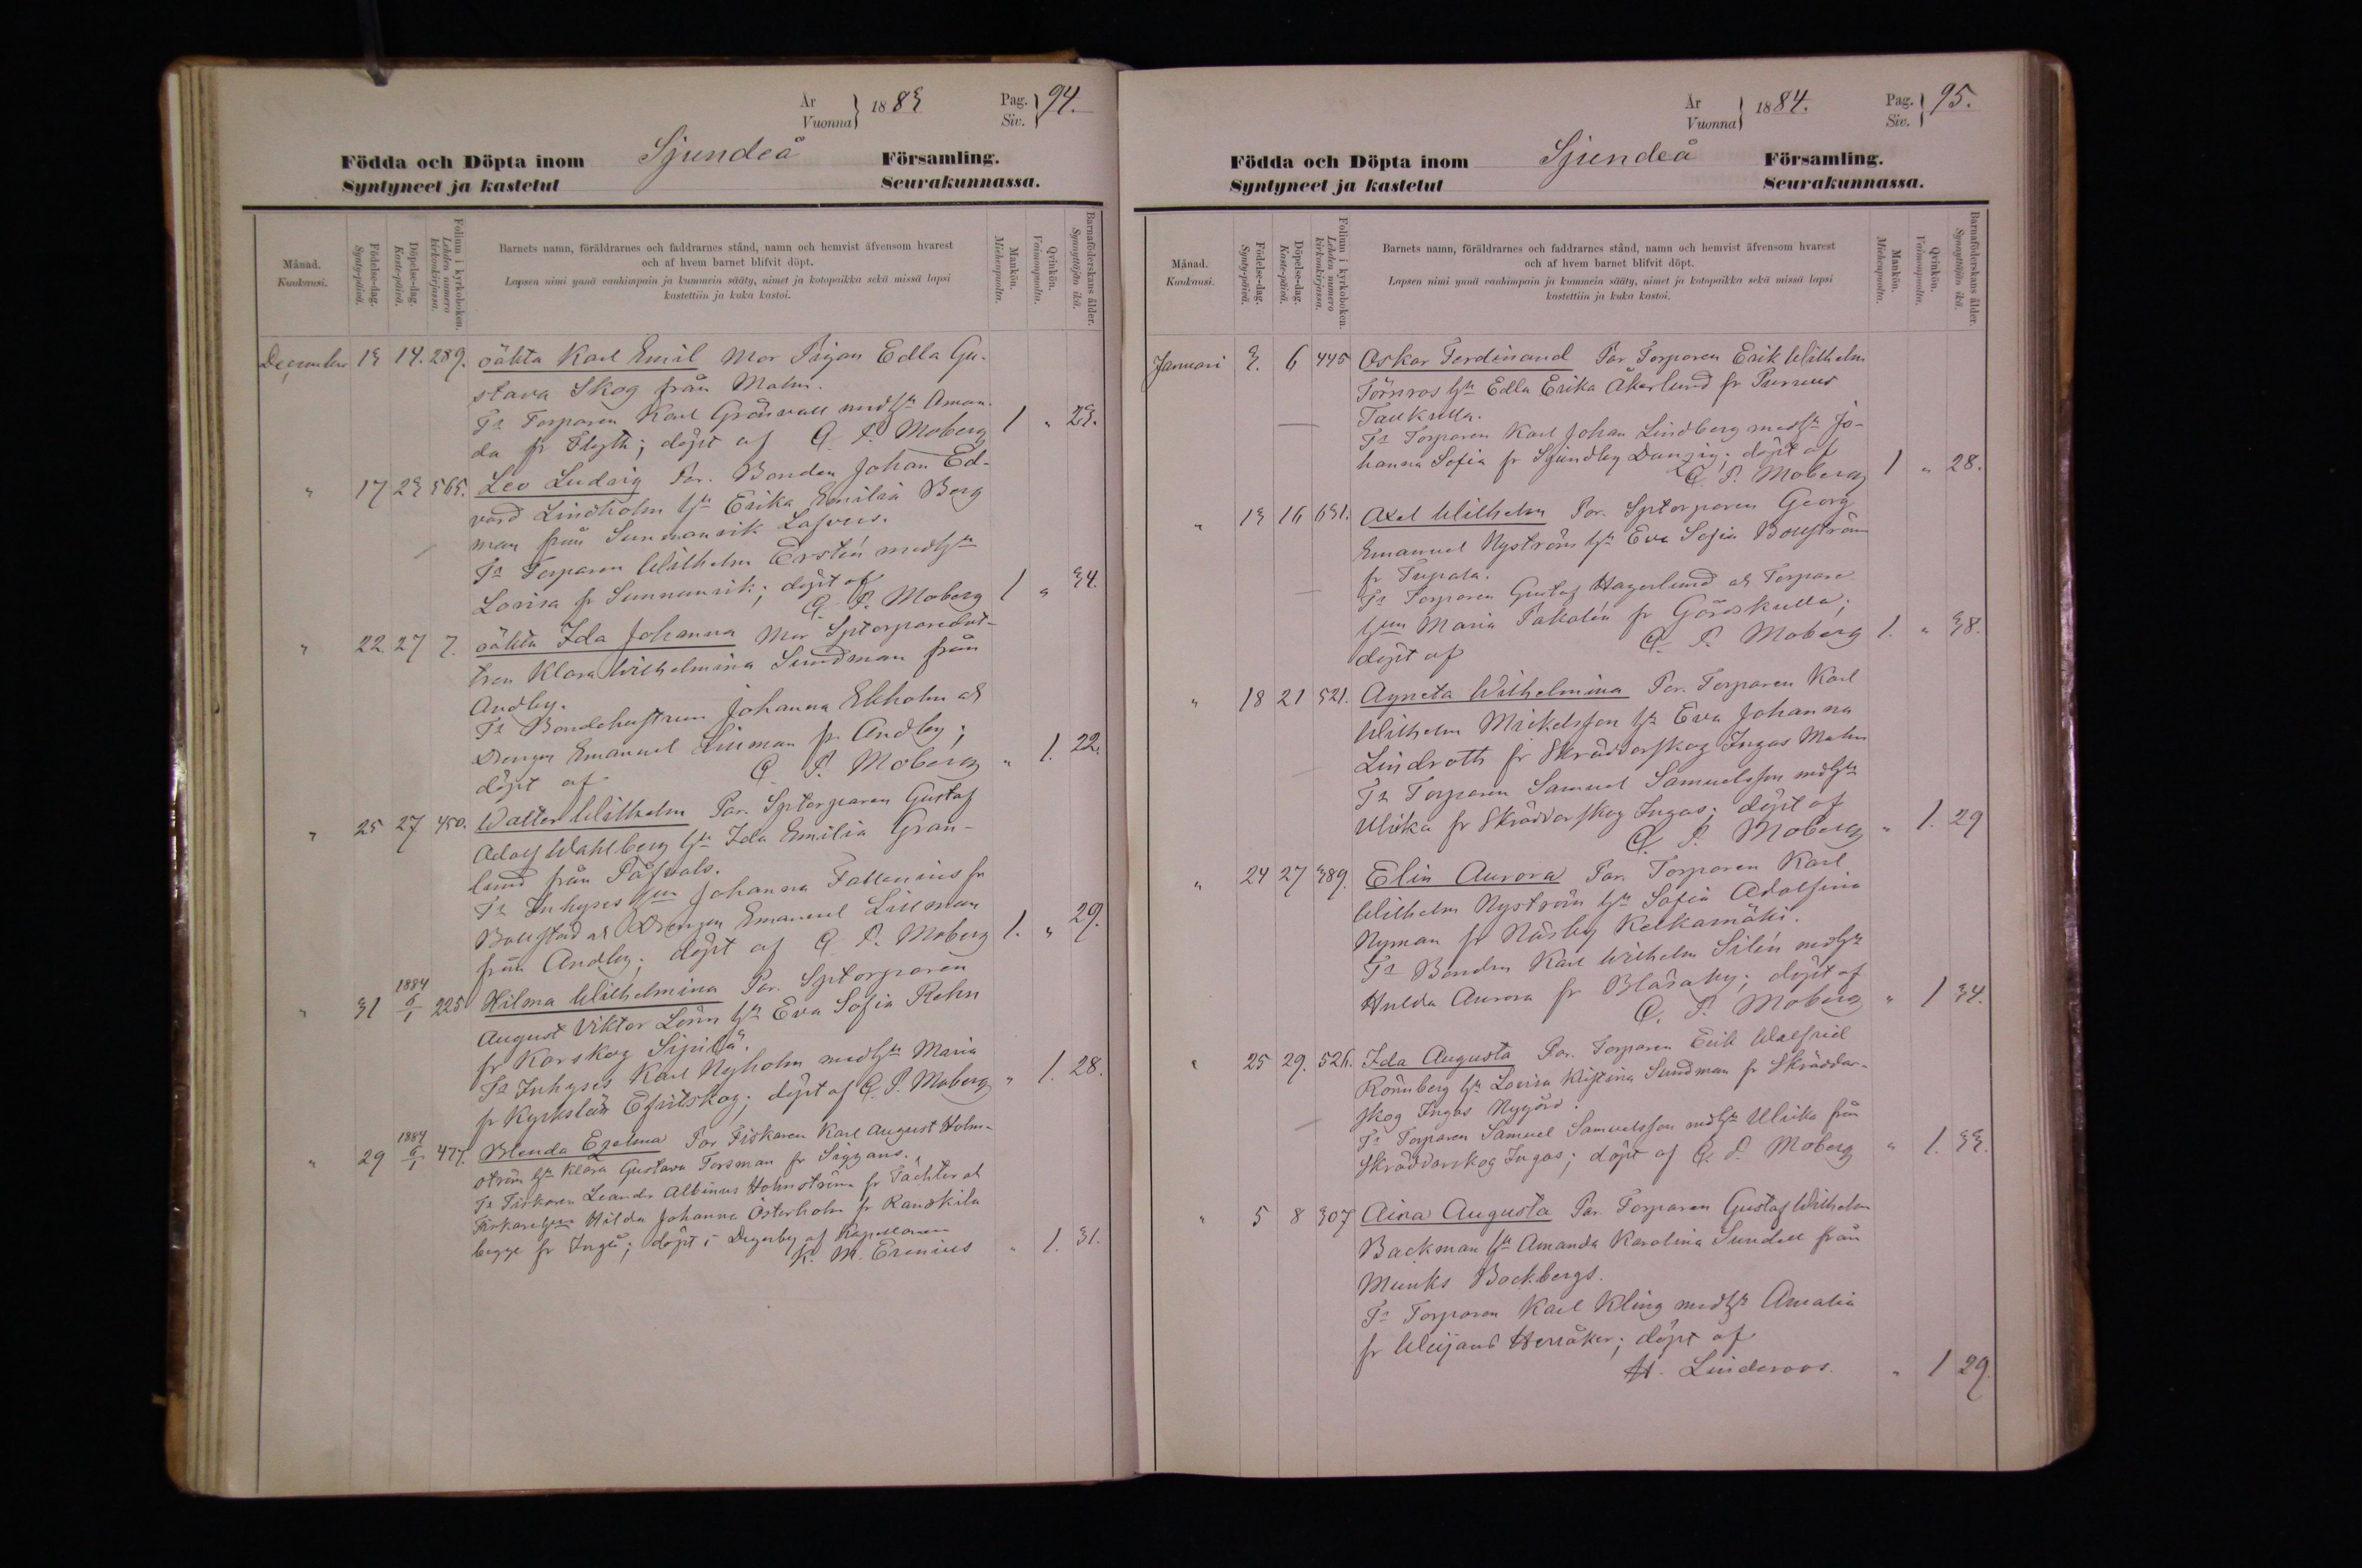 År
Vuonna
1883
Pag.
Siv.
94.
Födda och Döpta inom Sjundeå Församling.
Syntyneet ja kastetut Seurakunnassa.
Månad.
Kuukausi.
Födelse-dag.
Synty-päivä.
Döpelse-dag.
Kaste-päivä.
Folium i kyrkoboken.
Lehden numero kirkonkirjassa.
Barnets namn, föräldrarnes och faddrarnes stånd, namn och hemvist äfvensom hvarest
och af hvem barnet blifvit döpt.
Lapsen nimi ynnä vanhimpain ja kummein sääty, nimet ja kotopaikka sekä missä lapsi
kastettiin ja kuka kastoi.
Mankön.
Miehenpuolta.
Qvinkön.
Vaimonpuolta.
Barnaföderskans ålder.
Synnyttäjän ikä.
December 13 14. 289. oäkta Karl Emil Mor Pigan Edla Gu-
stava Skog från Malm.
Fs Torparen Karl Grönvall med hu Aman-
da fr Flyth; döpt af G. P. Moberg 1 " 23.
" 17 23 565. Leo Ludvig Par. Bonden Johan Ed-
vard Lindholm hu Erika Emilia Berg
man från Sunnanvik Lasvus.
Fs Torparen Wilhelm Ersten med hu
Lovisa fr Sunnanvik; döpt af
G. P. Moberg 1 " 34.
" 22. 27 7. oäkta Ida Johanna Mor Sptorparedot-
tren Klara Wilhelmina Sundman från
Andby.
Fs Bondehustrun Johanna Ekholm och
Drengen Emanuel Liiman fr Andby;
döpt af G. P. Moberg " 1. 22.
" 25 27 450. Walter Wilhelm Par. Sptorparen Gustaf
Adolf Wahlberg hu Ida Emilia Gran-
lund från Påfvals.
Fs Inhyses hun Johanna Fallenius fr
Bollstad och Drengen Emanuel Liiman
från Andby; döpt af G. P. Moberg 1. " 29.
" 31 1884 6/1 225 Hilma Wilhelmina Par. Sptorparen
August Viktor Lönn hu Eva Sofia Rehn
fr Karskog Sipilä.
Fs Inhyses Karl Nyholm med hu Maria
fr Kyrkslätt Efvitskog; döpt af G. P. Moberg " 1. 28.
" 29 1884 6/1 477. Blenda Ezelina Par Fiskaren Karl August Holm-
ström hu Klara Gustava Forsman fr Siggans.
Fs Fiskaren Leander Albinus Holmström fr Fächter och
Fiskarehun Hilda Johanna Österholm fr Ranskila
begge fr Ingå; döpt i Degerby af Kapellanen
K. M. Erenius " 1. 31.
År
Vuonna
1884.
Pag.
Siv.
95.
Födda och Döpta inom Sjundeå Församling.
Syntyneet ja kastetut Seurakunnassa.
Månad.
Kuukausi.
Födelse-dag.
Synty-päivä.
Döpelse-dag.
Kaste-päivä.
Folium i kyrkoboken.
Lehden numero kirkonkirjassa.
Barnets namn, föräldrarnes och faddrarnes stånd, namn och hemvist äfvensom hvarest
och af hvem barnet blifvit döpt.
Lapsen nimi ynnä vanhimpain ja kummein sääty, nimet ja kotopaikka sekä missä lapsi
kastettiin ja kuka kastoi.
Mankön.
Miehenpuolta.
Qvinkön.
Vaimonpuolta.
Barnaföderskans ålder.
Synnyttäjän ikä.
Januari 3. 6 445 Oskar Ferdinand Par Torparen Erik Wilhelm
Törnros hu Edla Erika Åkerlund fr Purnus
Tallkulla.
Fs Torparen Karl Johan Lindberg med hu Jo-
hanna Sofia fr Sjundby Danzig; döpt af
G. P. Moberg 1 " 28.
" 13 16 631. Axel Wilhelm Par. Sptorparen Georg
Emanuel Nyström hu Eva Sofia Bollström
fr Tupala.
Fs Torparen Gustaf Hagerlund och Torpare-
hun Maria Pakalén fr Göröskulla;
döpt af G. P. Moberg 1. " 38.
" 18 21 521. Agneta Wilhelmina Par. Torparen Karl
Wilhelm Mickelsson hu Eva Johanna
Lindroth fr Skräddarskog Ingas Malm
Fs Torparen Samuel Samuelsson med hu
Ulrika fr Skräddarskog Ingas; döpt af
G. P. Moberg " 1. 29
" 24 27 389. Elin Aurora Par. Torparen Karl
Wilhelm Nyström hu Sofia Adolfina
Nyman fr Näsby Kelkamäki.
Fs Bonden Karl Wilhelm Silén med hu
Hulda Aurora fr Blåsaby; döpt af
G. P. Moberg " 1 34.
" 25 29. 526. Ida Augusta Par. Torparen Erik Walfrid
Rönnberg hu Lovisa Kristina Sundman fr Skräddar-
skog Ingas Nygård.
Fs Torparen Samuel Samuelsson med hu Ulrika från
Skräddarskog Ingas; döpt af G. P. Moberg " 1. 33.
" 5 8 307 Aina Augusta Par. Torparen Gustaf Wilhelm
Backman hu Amanda Karolina Sundell från
Munks Backbergs.
Fs Torparen Karl Kling med hu Amalia
fr Weijans Herråker; döpt af
H. Linderoos. " 1 29.